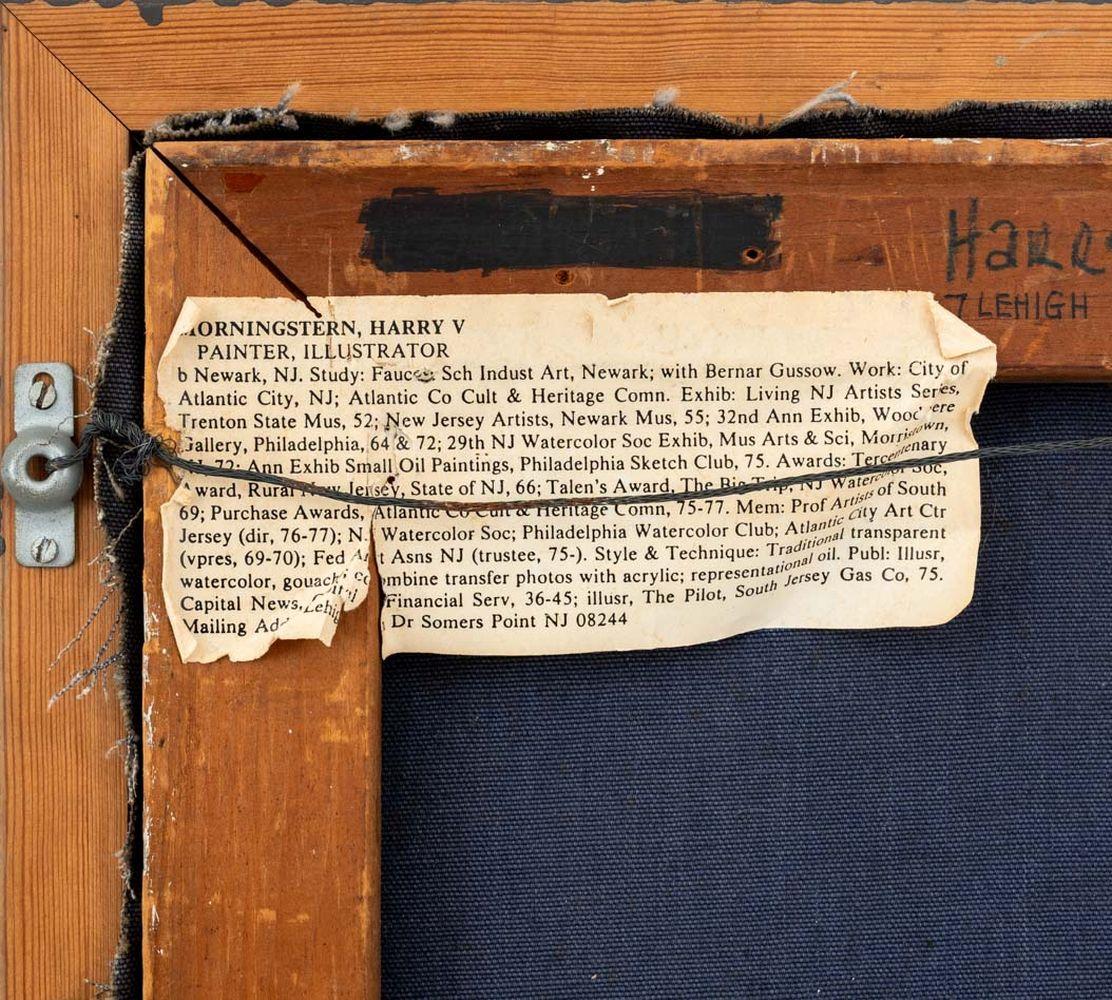 MORNINGSTERN, HARRY V
PAINTER, ILLUSTRATOR
b Newark, NJ. Study: Fawcett Sch Indust Art, Newark; with Bernar Gussow. Work: City of
Atlantic City, NJ; Atlantic Co Cult & Heritage Comn. Exhib: Living NJ Artists Series,
Trenton State Mus, 52; New Jersey Artists, Newark Mus, 55; 32nd Ann Exhib, Woodmere
Gallery, Philadelphia, 64 & 72; 29th NJ Watercolor Soc Exhib, Mus Arts & Sci, Morristown,
72; Ann Exhib Small Oil Paintings, Philadelphia Sketch Club, 75. Awards: Tercentenary
Award, Rural New Jersey, State of NJ, 66; Talen's Award, The Big Trip, NJ Watercolor Soc,
69; Purchase Awards, Atlantic Co Cult & Heritage Comn, 75-77. Mem: Prof Artists of South
Jersey (dir, 76-77); NJ Watercolor Soc; Philadelphia Watercolor Club; Atlantic City Art Ctr
(vpres, 69-70); Fed Art Asns NJ (trustee, 75-). Style & Technique: Traditional transparent
watercolor, gouache; combine transfer photos with acrylic; representational oil. Publ: Illusr,
Capital News, Financial Serv, 36-45; illusr, The Pilot, South Jersey Gas Co, 75.
Mailing Add Lehigh Dr Somers Point NJ 08244
Harr
7 LEHIGH